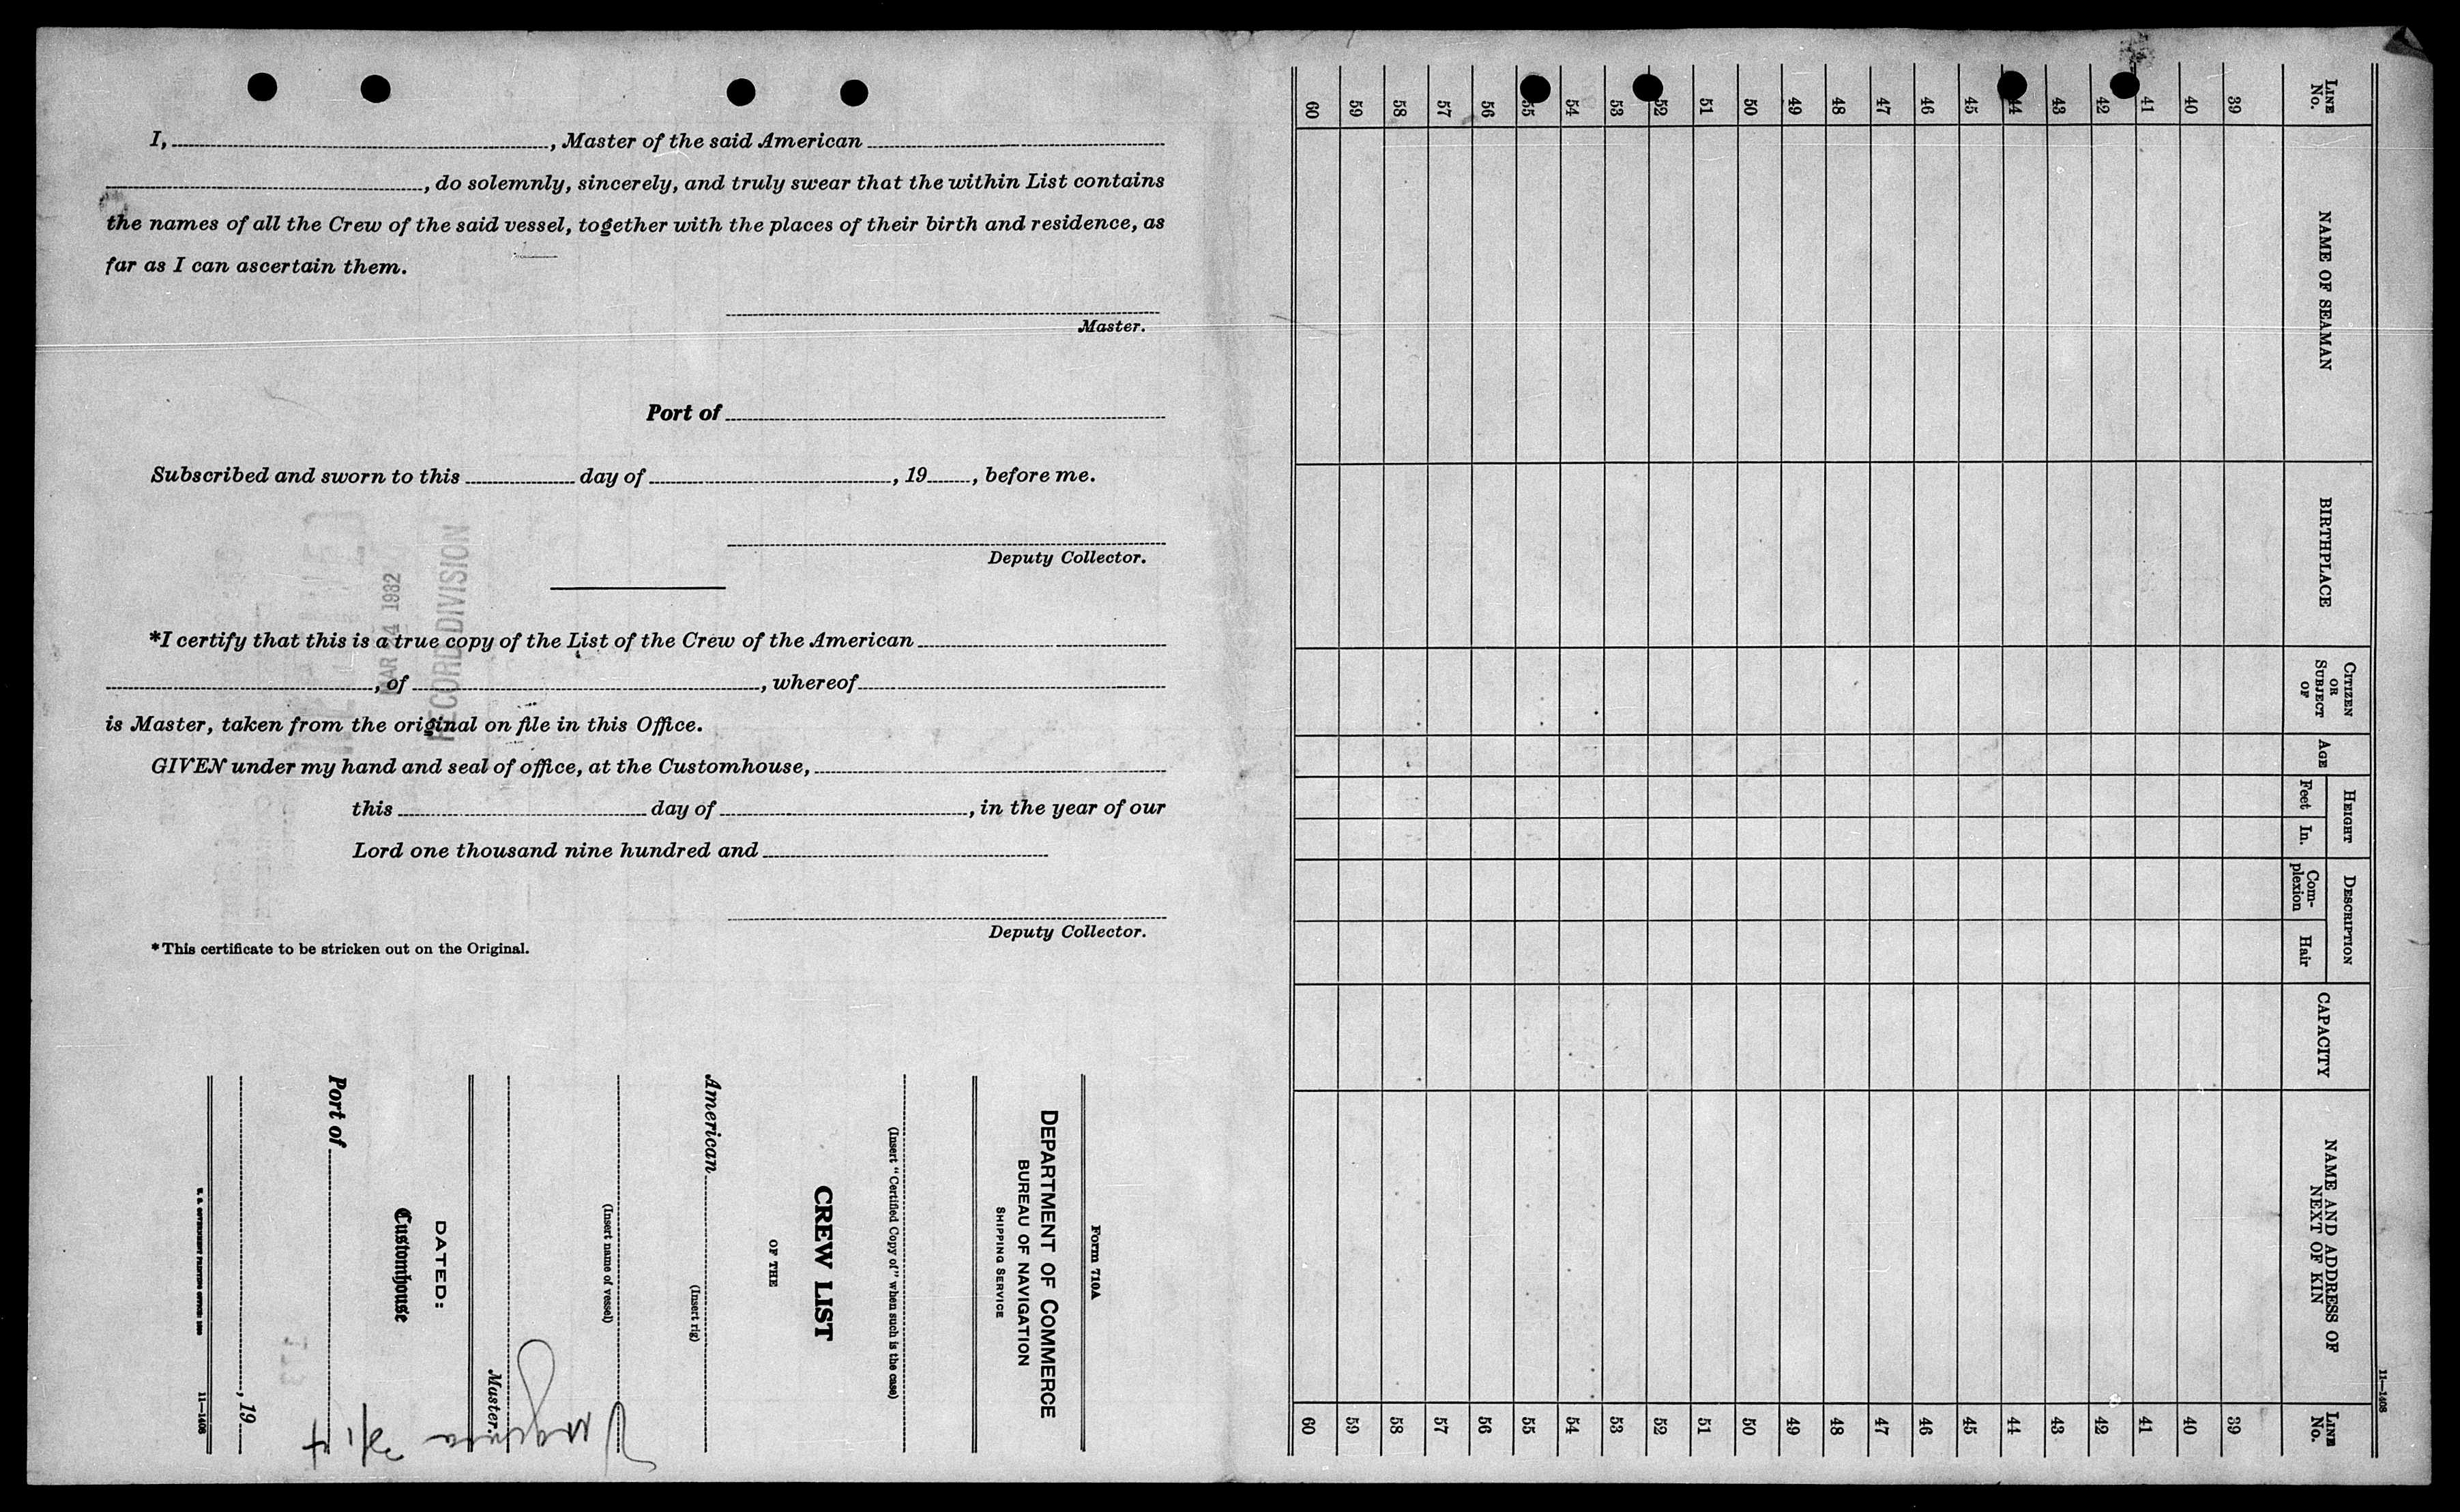 I, , Master of the said American
, do solemnly, sincerely, and truly swear that the within List contains
the names of all the Crew of the said vessel, together with the places of their birth and residence, as
far as I can ascertain them.
Master.
Port of
Subscribed and sworn to this day of , 19 , before me.
Deputy Collector.
MAR 24 1932
RECORD DIVISION
*I certify that this is a true copy of the List of the Crew of the American
, of , whereof
is Master, taken from the original on file in this Office.
GIVEN under my hand and seal of office, at the Customhouse,
this day of , in the year of our
Lord one thousand nine hundred and
Deputy Collector.
*This certificate to be stricken out on the Original.
Form 710A
DEPARTMENT OF COMMERCE
BUREAU OF NAVIGATION
SHIPPING SERVICE
(Insert "Certified Copy of" when such is the case)
CREW LIST
OF THE
American
(Insert rig)
(Insert name of vessel)
Virginia 3/14
Master.
DATED:
Customhouse
Port of
, 19
U. S. GOVERNMENT PRINTING OFFICE: 1930
11—1408
11—1408
LINE No.
NAME OF SEAMAN
BIRTHPLACE
CITIZEN OR SUBJECT OF
AGE
HEIGHT
Feet
In.
DESCRIPTION
Com-
plexion
Hair
CAPACITY
NAME AND ADDRESS OF
NEXT OF KIN
LINE No.
39 39
40 40
41 41
42 42
43 43
44 44
45 45
46 46
47 47
48 48
49 49
50 50
51 51
52 52
53 53
54 54
55 55
56 56
57 57
58 58
59 59
60 60